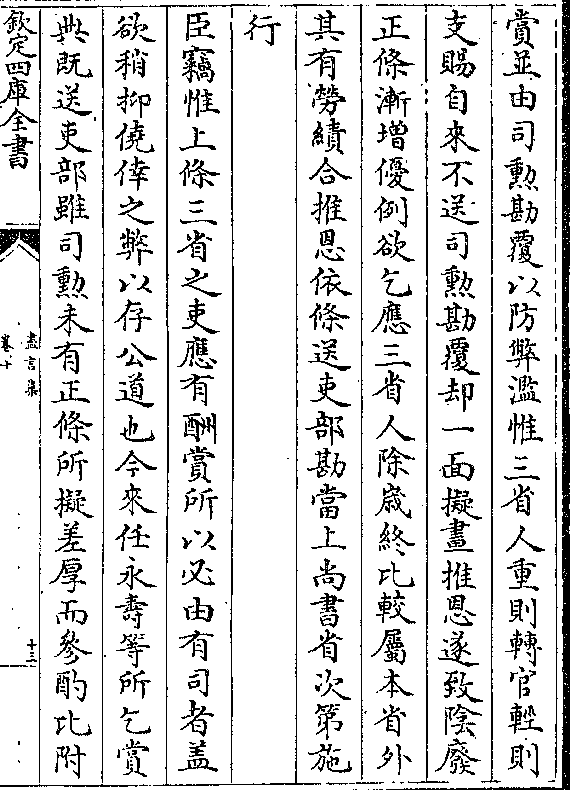 賞並由司勲勘覆以防弊濫惟三省人重則轉官輕則
支賜自來不送司勲勘覆却一面擬畫推恩遂致陰廢
正條漸增優例欲乞應三省人除歳終比較屬本省外
其有勞績合推恩依條送吏部勘當上尚書省次第施
行
臣竊惟上條三省之吏應有酬賞所以必由有司者盖
欲稍抑僥倖之弊以存公道也今來任永壽等所乞賞
典既送吏部雖司勲未有正條所擬差厚而參酌比附
欽定四庫全書
盡言集
卷十
十三